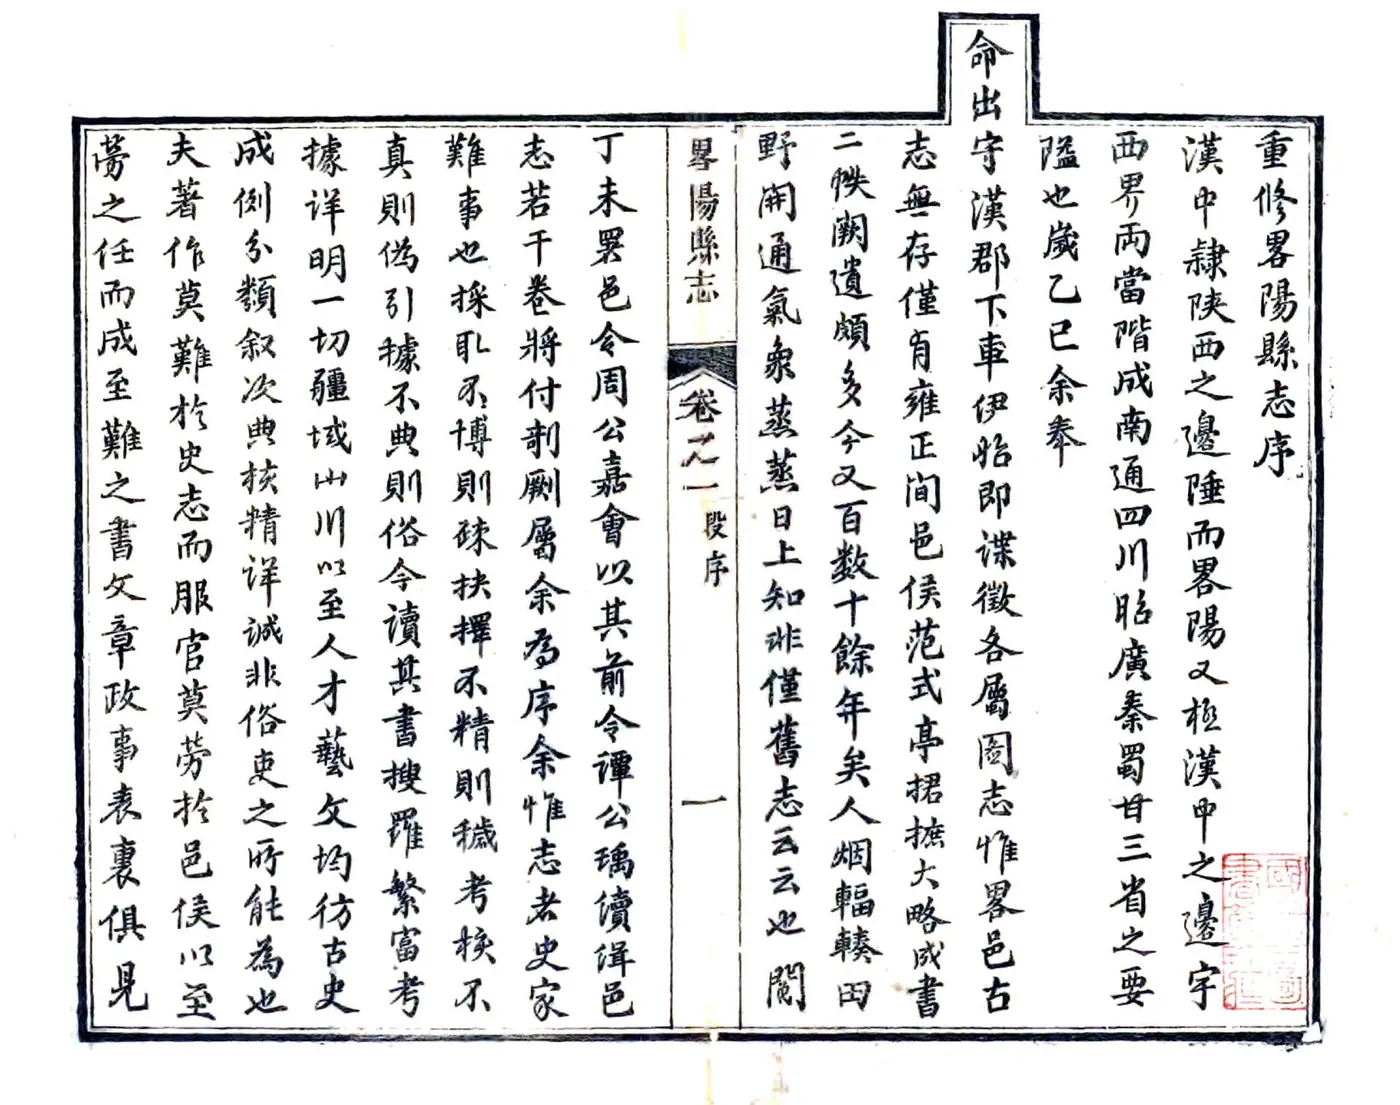 重修畧陽縣志序
漢中隷陜西之邊陲而畧陽又極漢中之邊宇
西界兩當階成南通四川昭廣秦蜀甘三省之要
隘也歲乙巳余奉
命出守漢郡下車伊始即諜徵各屬圖志惟畧邑古
志無存僅有雍正間邑侯范式亭捃摭大略成書
二帙闕遺頗多今又百數十餘年矣人烟輻輳田
野開通氣象蒸蒸日上知非僅舊志云云也閱
畧陽縣志
卷之一
段序
一
丁未署邑令周公嘉會以其前令譚公瑀續緝邑
志若干卷將付剞劂屬余為序余惟志者史家
難事也採取不博則疎抉擇不精則穢考核不
真則偽引據不典則俗今讀其書搜羅繁富考
據詳明一切疆域山川以至人才藝文均彷古史
成例分類叙次典核精詳誠非俗吏之所能為也
夫著作莫難於史志而服官莫勞於邑侯以至
勞之任而成至難之書文章政事表裏俱見